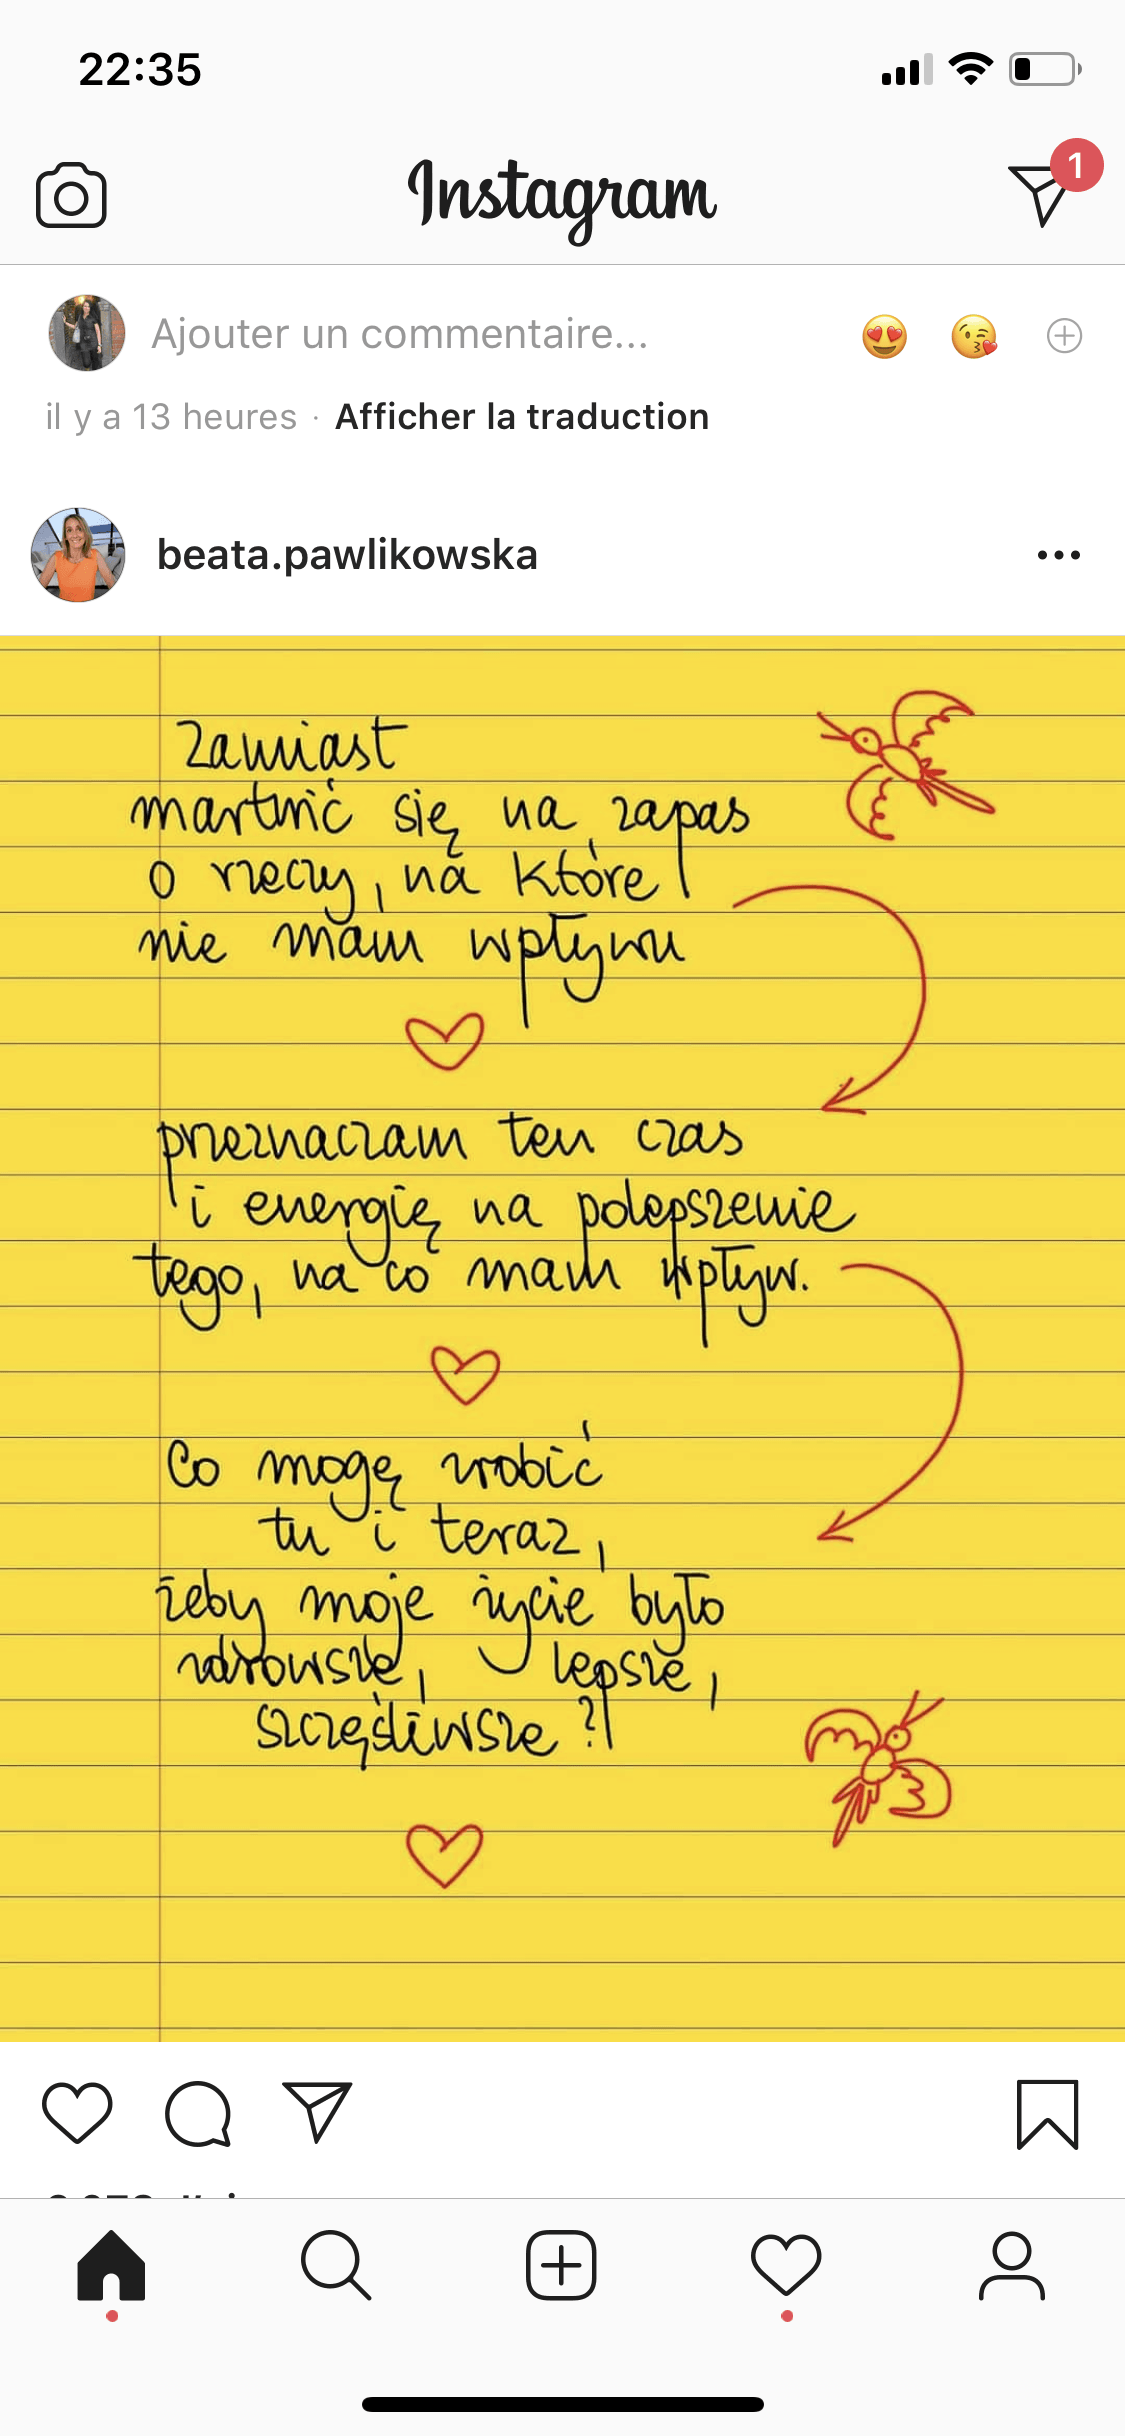 22:35
Instagram
1
Ajouter un commentaire...
il y a 13 heures · Afficher la traduction
beata.pawlikowska
Zamiast
martwić się na zapas
o rzeczy, na które
nie mam wpływu
przeznaczam ten czas
i energię na polepszenie
tego, na co mam wpływ.
Co mogę zrobić
tu i teraz,
żeby moje życie było
zdrowsze, lepsze,
szczęśliwsze?